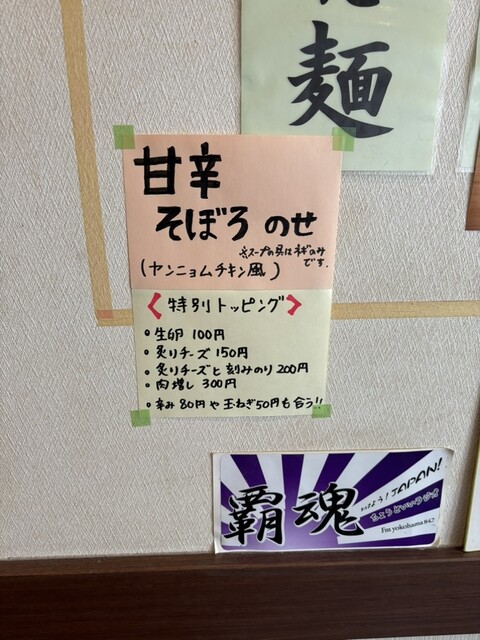 麺
甘辛
そぼろ のせ
※スープの具はネギのみ
です.
(ヤンニョムチキン風)
〈特別トッピング〉
・生卵 100円
・炙りチーズ 150円
・炙りチーズと刻みのり 200円
・肉増し 300円
・辛み 80円 や 玉ねぎ 50円も合う!!
覇魂
JAPAN!
ちょうどいいラジオ
Fm yokohama 84.7